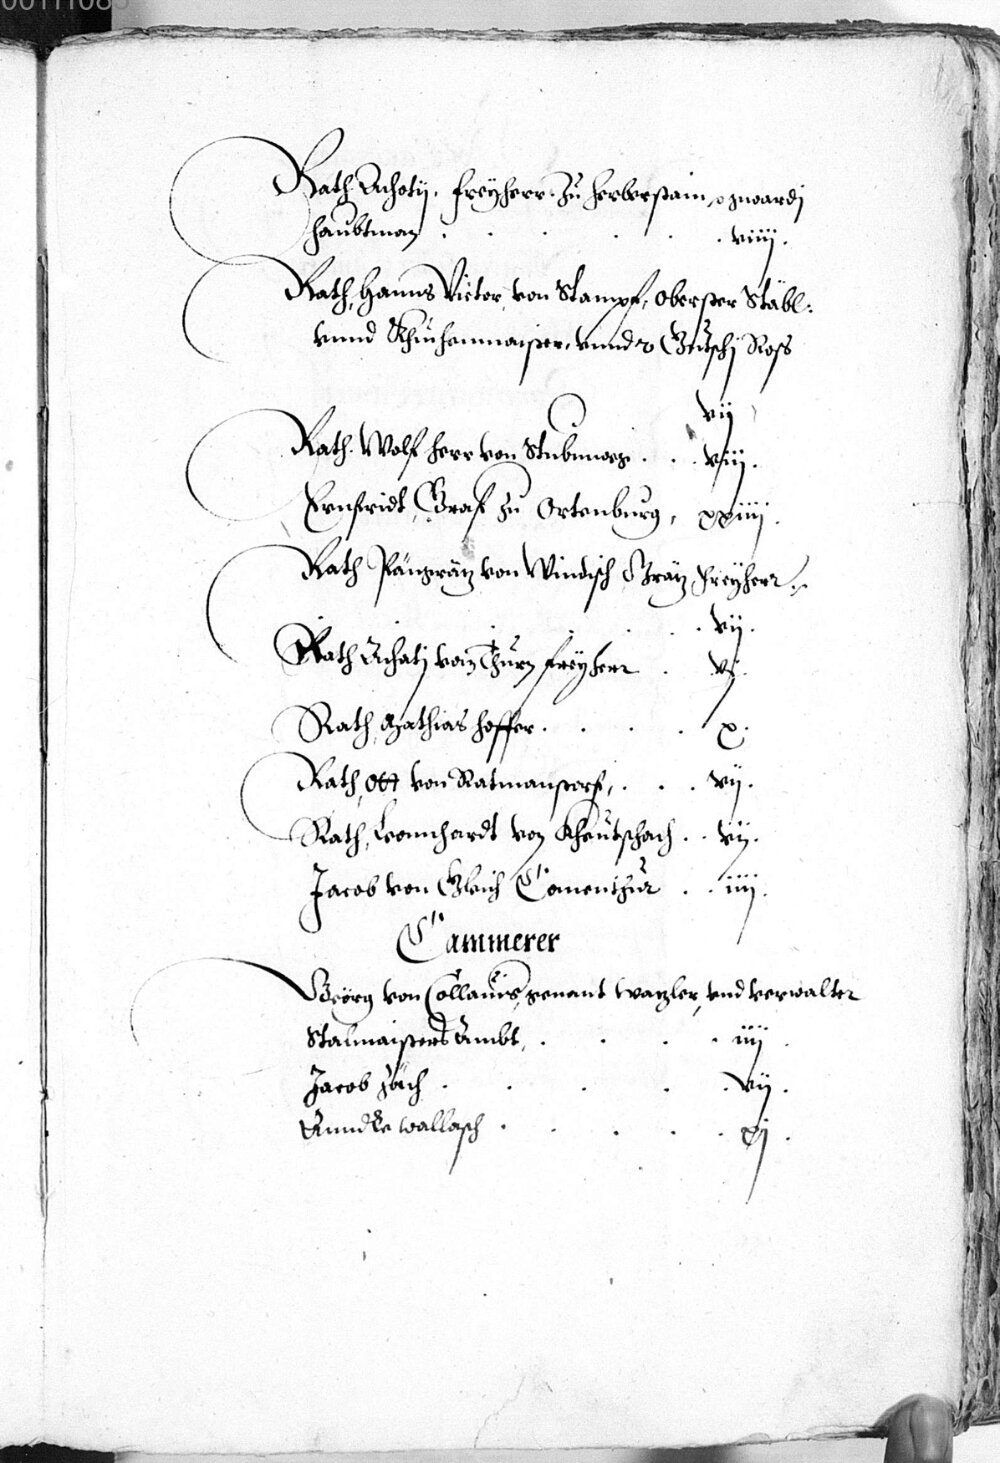 Rath Achatÿ, Freÿherr zu Herberstain, gwardj
Haubtman . . . . . viiij .
Rath, Hanns Victor von Stampf, Oberster Stäbl:
vnnd Khuchenmaister, vnnd Gutschj Ross
vij
Rath. Wolf Herr von Stubmwerg . . viij .
Ernfridt, Graf zu Ortenburg, xxiiij .
Rath Pangrätz von Windisch Grätz Freÿherr .
. . . vij .
Rath Achatj von Thurn Freÿherr . vj .
Rath, Mathias Hoffer . . . . x .
Rath, Ott von Ratmanstorf, . . . vij .
Rath, Leonnhardt von Kheutschach . . vij .
Jacob von Gleich Comenthur . . iiij .
Cammerer
Geörg von Collauis, genant Wanzler, vnd verwalter
Stalmaisters Ambt, . . . . iiij .
Jacob Zäch . . . . . vij .
wallasch . . . . xj .